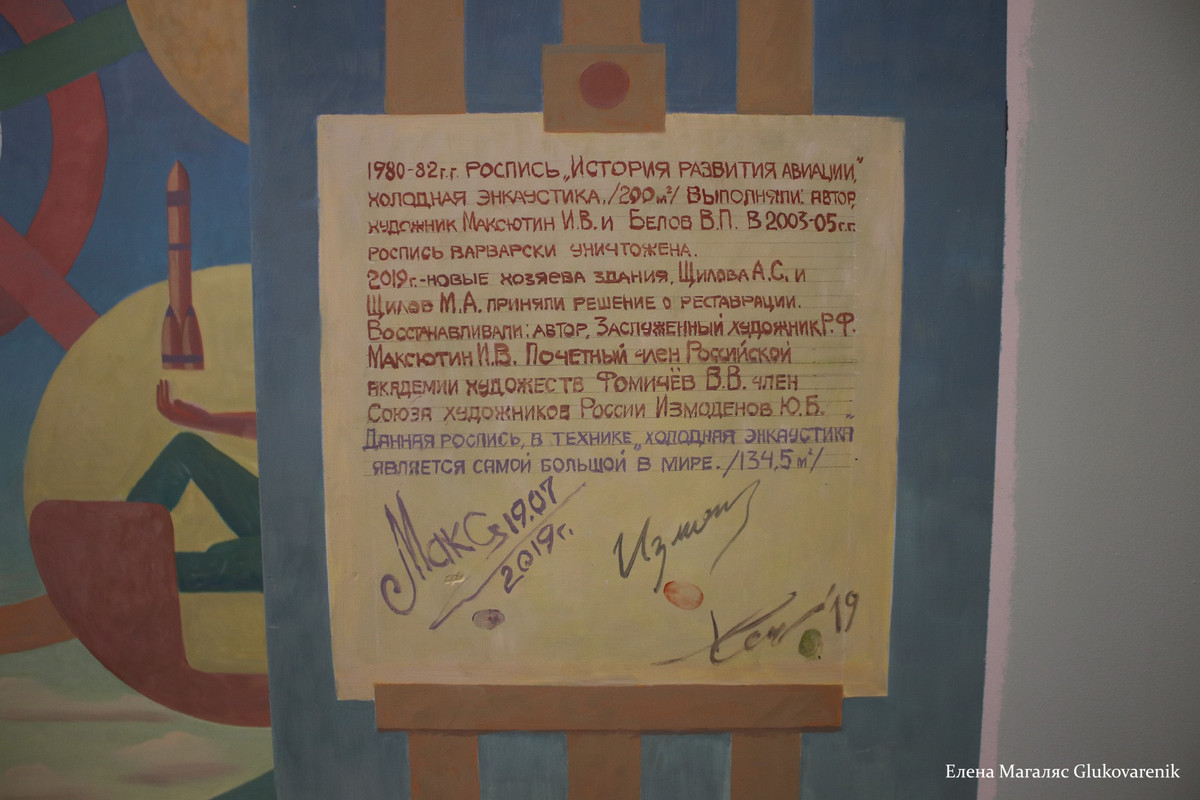 1980-82г.г. РОСПИСЬ „ИСТОРИЯ РАЗВИТИЯ АВИАЦИИ,"
ХОЛОДНАЯ ЭНКАУСТИКА, /200м²/ ВЫПОЛНЯЛИ: АВТОР,
ХУДОЖНИК МАКСЮТИН И.В. И БЕЛОВ В.П. В 2003-05г.г.
РОСПИСЬ ВАРВАРСКИ УНИЧТОЖЕНА.
2019г.-НОВЫЕ ХОЗЯЕВА ЗДАНИЯ, ЩИЛОВА А.С. И
ЩИЛОВ М.А. ПРИНЯЛИ РЕШЕНИЕ О РЕСТАВРАЦИИ.
ВОССТАНАВЛИВАЛИ: АВТОР, ЗАСЛУЖЕННЫЙ ХУДОЖНИК Р.Ф.
МАКСЮТИН И.В. ПОЧЕТНЫЙ ЧЛЕН РОССИЙСКОЙ
АКАДЕМИИ ХУДОЖЕСТВ ФОМИЧЁВ В.В. ЧЛЕН
СОЮЗА ХУДОЖНИКОВ РОССИИ ИЗМОДЕНОВ Ю.Б.
ДАННАЯ РОСПИСЬ, В ТЕХНИКЕ „ХОЛОДНАЯ ЭНКАУСТИКА"
ЯВЛЯЕТСЯ САМОЙ БОЛЬШОЙ В МИРЕ. /134,5м²/
19.07
2019г.
'19
Елена Магаляс Glukovarenik